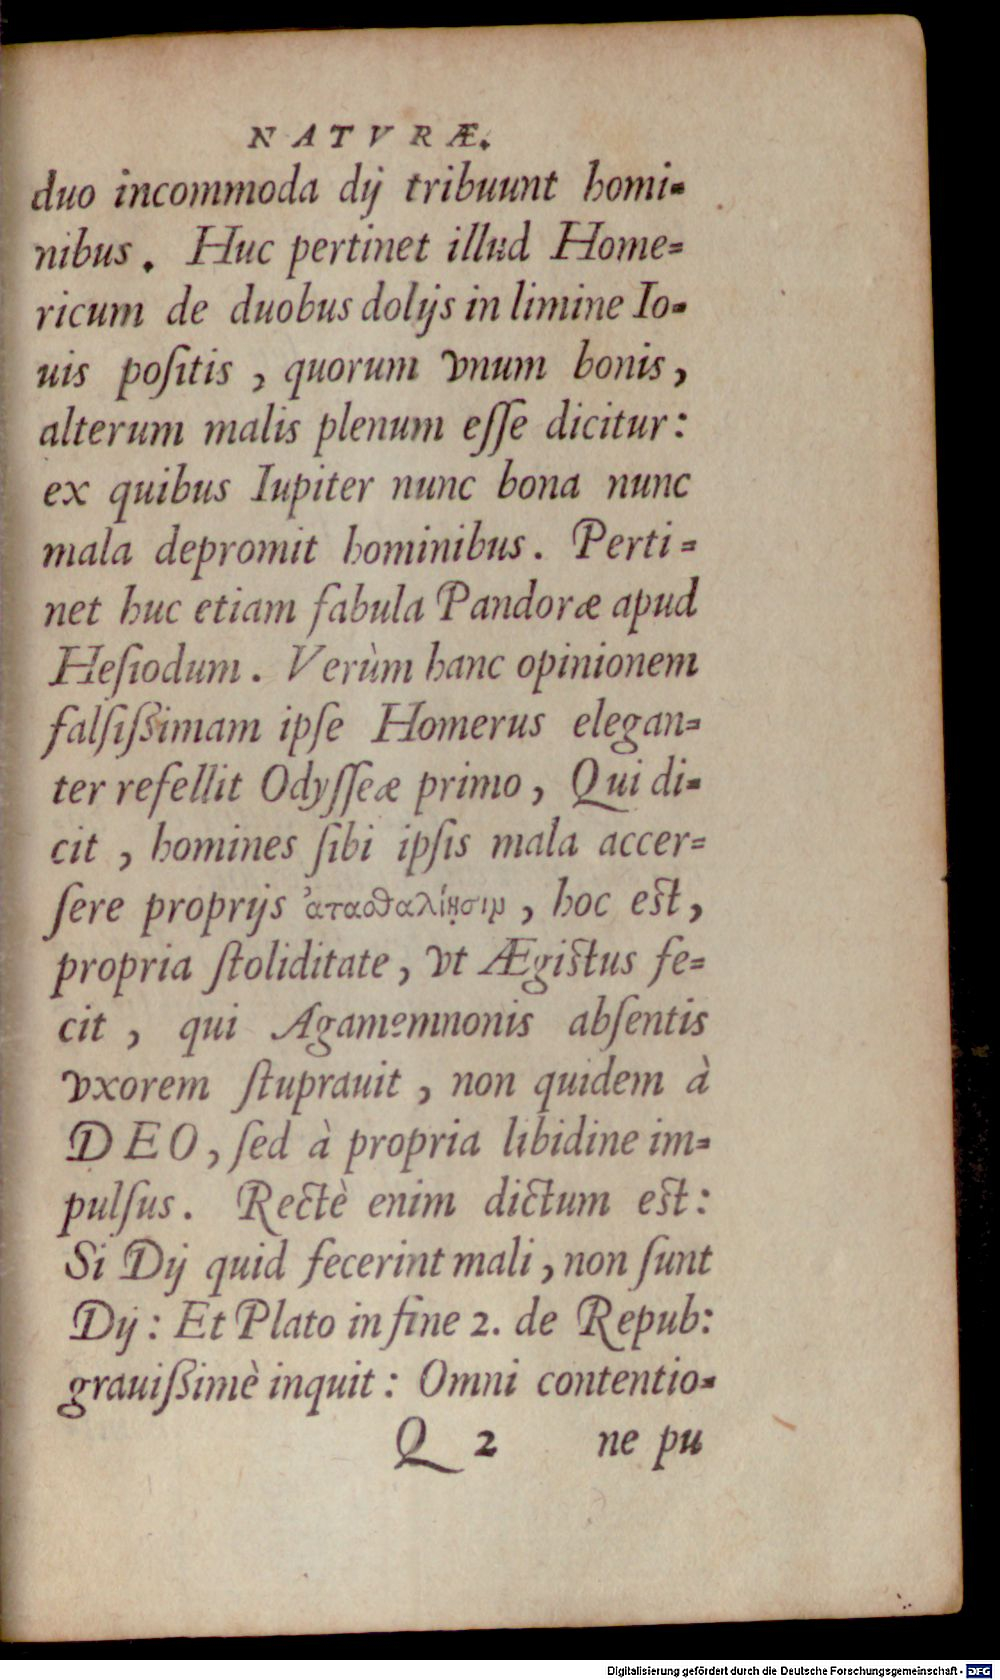 NATVRÆ.
duo incommoda dij tribuunt homi=
nibus. Huc pertinet illud Home=
ricum de duobus dolijs in limine Io=
uis poſitis, quorum vnum bonis,
alterum malis plenum eſſe dicitur:
ex quibus Iupiter nunc bona nunc
mala depromit hominibus. Perti=
net huc etiam fabula Pandoræ apud
Heſiodum. Verùm hanc opinionem
falſiſsimam ipſe Homerus elegan=
ter refellit Odyſſeæ primo, Qui di=
cit, homines ſibi ipſis mala accer=
ſere proprijs ἀταοθαλίῃσιμ, hoc est,
propria ſtoliditate, vt Ægistus fe=
cit, qui Agamemnonis abſentis
vxorem ſtuprauit, non quidem à
DEO, ſed à propria libidine im=
pulſus. Rectè enim dictum est:
Si Dij quid fecerint mali, non ſunt
Dij: Et Plato in fine 2. de Repub:
grauiſsimè inquit: Omni contentio=
Q 2 ne pu
Digitalisierung gefördert durch die Deutsche Forschungsgemeinschaft - DFG